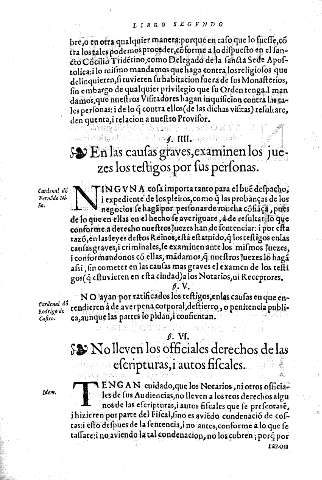 LIBRO SEGVNDO
bre, o en otra qualquier manera: porque en caso que lo fuesse, cõ
tra los tales podemos proceder, cõforme a lo dispuesto en el san-
cto Cõcilio Tridétino, como Delegado de la sancta Sede Apos-
tolica: i lo mismo mandamos que haga contra los religiosos que
delinquierẽ, si tuvierẽ su habitacion fuera de sus Monasterios,
sin embargo de qualquier privilegio que su Orden tenga. I man
damos, que nuestros Visitadores hagan inquisicion contra las ta-
les personas: i de lo q̃ contra ellos (de las dichas visitas) resultare,
den quenta, i relacion a nuestro Provisor.
§. IIII.
En las causas graves, examinen los jue-
zes los testigos por sus personas.
Cardenal dõ
NINGVNA cosa importa tanto para el buẽ despacho,
i expediente de los pleitos, como q̃ las probanças de los
negocios se hagã por personas de mucha cõfiãça, pues
de lo que en ellas en el hecho se averiguare, à de resultar lo que
conforme a derecho nuestros Juezes han de sentenciar: i por esta
razõ, en las leyes destos Reinos, està estatuido, q̃ los testigos en las
causas graves, i criminales, se examinen ante los mismos Juezes,
i conformandonos cõ ellas, mãdamos, q̃ nuestros Juezes lo hagã
assi, sin cometer en las causas mas graves el examen de los testi
gos (q̃ estuvieren en esta ciudad) a los Notarios, ni Receptores.
§. V.
Cardenal dõ
Rodrigo de
Castro.
NO ayan por ratificados los testigos, en las causas en que en-
tendieren à de aver pena corporal, destierro, o penitencia publi
ca, aunque las partes lo pidan, i consientan.
§. VI.
No lleven los officiales derechos de las
escripturas, i autos fiscales.
Idem.
TENGAN cuidado, que los Notarios, ni otros officia-
les de sus Audiencias, no lleven a los reos derechos algu
nos de las escripturas, i autos fiscales que se presentarẽ,
i hizieren por parte del Fiscal, sino es aviẽdo condenacion de cos-
tas: i esto despues de la sentencia, i no antes, conforme a lo que se
tassare: i no aviendo la tal condenacion, no los cobren; porq̃ por